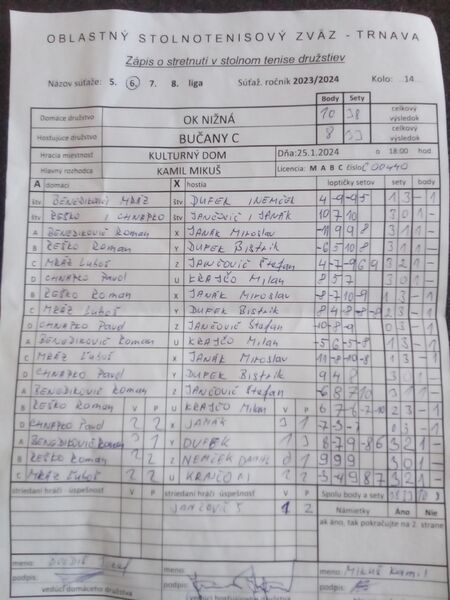 OBLASTNÝ STOLNOTENISOVÝ ZVÄZ - TRNAVA
Zápis o stretnutí v stolnom tenise družstiev
Názov súťaže: 5. 6. 7. 8. liga Súťaž. ročník 2023/2024 Kolo: ..14...
Body Sety
Domáce družstvo OK NIŽNÁ 10 38 celkový výsledok
Hosťujúce družstvo BUČANY C 8 33 celkový výsledok
Hracia miestnosť KULTÚRNY DOM Dňa:25.1.2024 o 18:00 hod
Hlavný rozhodca KAMIL MIKUŠ Licencia: M A B C číslo C00440
A domáci X hostia loptičky setov sety body
štv BENEDIKOVIČ MRÁZ štv DUFEK NEMČEK 4 -9 -9 5 1 3 - 1
štv REŠKO CHNAPKO štv JANČOVIČ JANÁK 10 7 10 3 0 1 -
A BENEDIKOVIČ Roman X JANÁK Miroslav -11 9 9 8 3 1 1 -
B REŠKO Roman Y DUFEK Bistrík -6 5 10 8 3 1 -
C MRÁZ Ľuboš Z JANČOVIČ Štefan 4 -7 -9 6 9 3 2 1 -
D CHNAPKO Pavol U KRAJČO Milan 8 5 7 3 0 1 -
B REŠKO Roman X JANÁK Miroslav -8 -7 10 -9 1 3 - 1
C MRÁZ Ľuboš Y DUFEK Bistrík 2 3 - 1
D CHNAPKO Pavol Z JANČOVIČ Štefan 0 3 - 1
A BENEDIKOVIČ Roman U KRAJČO Milan -5 6 -5 -8 1 3 - 1
C MRÁZ Ľuboš X JANÁK Miroslav 1 3 - 1
D CHNAPKO Pavol Y DUFEK Bistrík 9 4 8 3 0 1 -
A BENEDIKOVIČ Roman Z JANČOVIČ Štefan -6 8 7 10 3 1 1 -
B REŠKO Roman V P U KRAJČO Milan V P 6 7 6 -7 -10 2 3 - 1
D CHNAPKO Pavol 2 2 X JANÁK 3 1 -7 -3 -7 0 3 - 1
A BENEDIKOVIČ Roman 3 1 Y DUFEK 1 3 8 -7 9 -8 6 3 2 1 -
B REŠKO Roman 2 2 Z NEMČEK 0 1 9 9 9 3 0 1 -
C MRÁZ Ľuboš 2 2 U KRAJČO M 2 2 -3 4 9 8 7 3 2 1 -
striedaní hráči úspešnosť V P striedaní hráči úspešnosť V P Spolu body a sety 38 33 10 8
JANČOVIČ Š 1 2 Námietky Áno Nie
ak áno, tak pokračujte na 2. strane
meno: meno: meno: Mikuš Kamil
podpis: podpis: podpis:
vedúci domáceho družstva vedúci hosťujúceho družstva